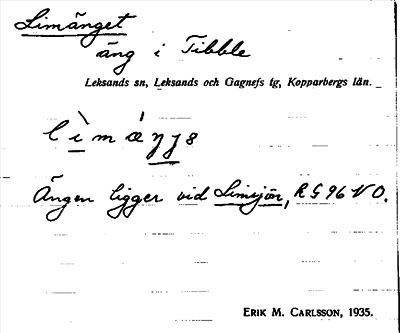 Limänget
äng i Tibble
Leksands sn, Leksands och Gagnefs tg, Kopparbergs län.
Ängen ligger vid Limsjön, RG96 NO.
ERIK M. CARLSSON, 1935.